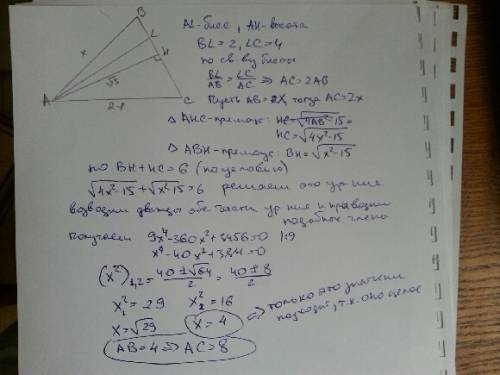 B
AL-бисс, AH-высота
BL=2, LC=4
x
L
H
по св-ву биссы
BL/AB = LC/AC => AC=2AB
√15
A
C
Пусть AB=X, тогда AC=2x
△ AHC-прямоуг: HC=√4AB²-15=
HC=√4x²-15
△ ABH-прямоуг: BH=√x²-15
но BH+HC=6 (по условию)
√4x²-15+√x²-15=6 решаем это ур-ние
возводим дважды обе части ур-ния и приводим
подобные члены
Получаем 9x⁴-360x²+3456=0 |:9
x⁴-40x²+384=0
(x²)1,2=40±√64/2=40±8/2
x₁²=29 x₂²=16
x=√29 x=4 => только это значение
подходит, т.к. оно целое
AB=4=>AC=8